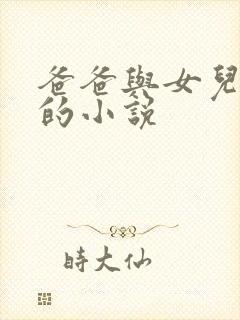 爸爸與女兒
的小說
時大仙